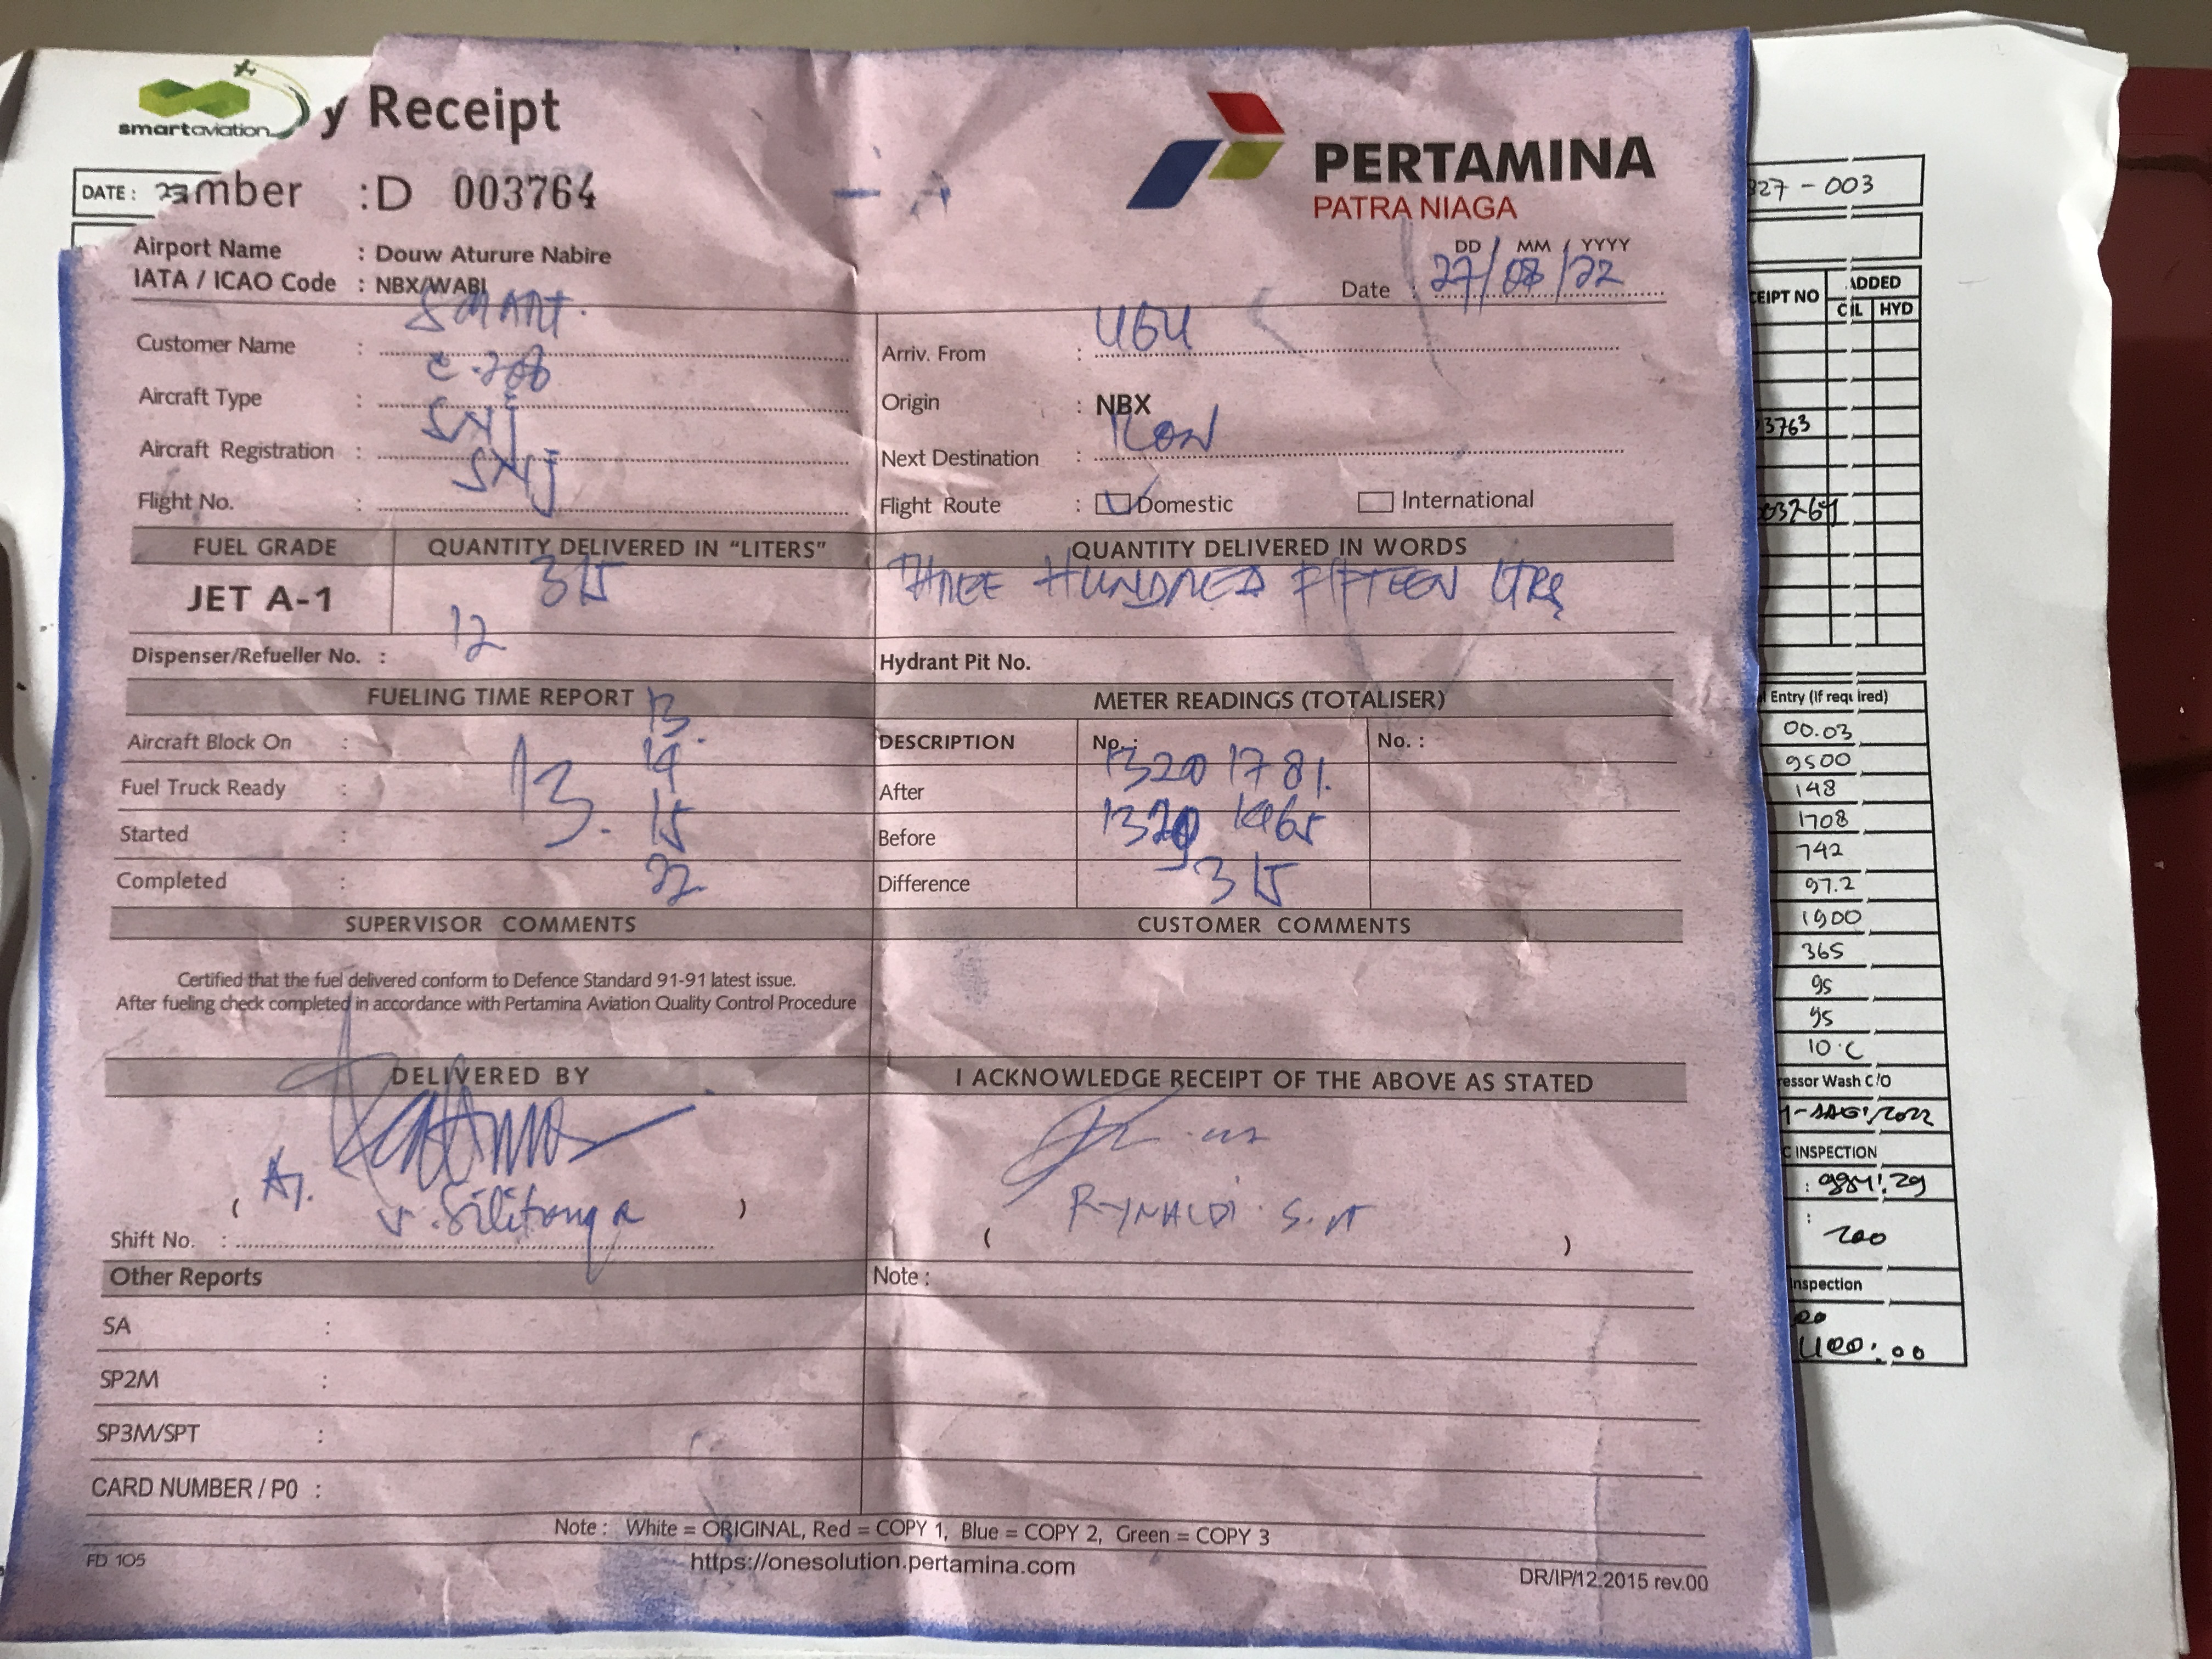 smartaviation
y Receipt
PERTAMINA
PATRA NIAGA
DATE :
mber : D 003764
27 - 003
Airport Name : Douw Aturure Nabire
IATA / ICAO Code : NBX/WABI
DD / MM / YYYY
Date : 27/08/22
EIPT NO
ADDED
OIL HYD
Customer Name : SMART.
Arriv. From : UGU
Aircraft Type : C-208
Origin : NBX
3763
Aircraft Registration : SNJ
Next Destination : KON
Flight No. : SNJ
Flight Route : Domestic International
FUEL GRADE QUANTITY DELIVERED IN "LITERS" QUANTITY DELIVERED IN WORDS
JET A-1 315 THREE HUNDRED FIFTEEN LTRS
Dispenser/Refueller No. : 12
Hydrant Pit No.
FUELING TIME REPORT METER READINGS (TOTALISER)
Entry (If required)
Aircraft Block On : 13.
DESCRIPTION No. : No. :
Fuel Truck Ready : 14
After 1320 1781.
Started : 13. 15
Before
Completed : 22
Difference 315
00.03
9500
148
1708
742
97.2
1900
365
95
95
10°C
SUPERVISOR COMMENTS CUSTOMER COMMENTS
Certified that the fuel delivered conform to Defence Standard 91-91 latest issue.
After fueling check completed in accordance with Pertamina Aviation Quality Control Procedure
DELIVERED BY I ACKNOWLEDGE RECEIPT OF THE ABOVE AS STATED
ressor Wash C/O
2022
C INSPECTION
( Silitonga )
( RYNALDI. S. )
Shift No. :
200
Inspection
Other Reports Note :
SA :
SP2M :
SP3M/SPT :
CARD NUMBER / P0 :
Note : White = ORIGINAL, Red = COPY 1, Blue = COPY 2, Green = COPY 3
FD 105
https://onesolution.pertamina.com
DR/IP/12.2015 rev.00